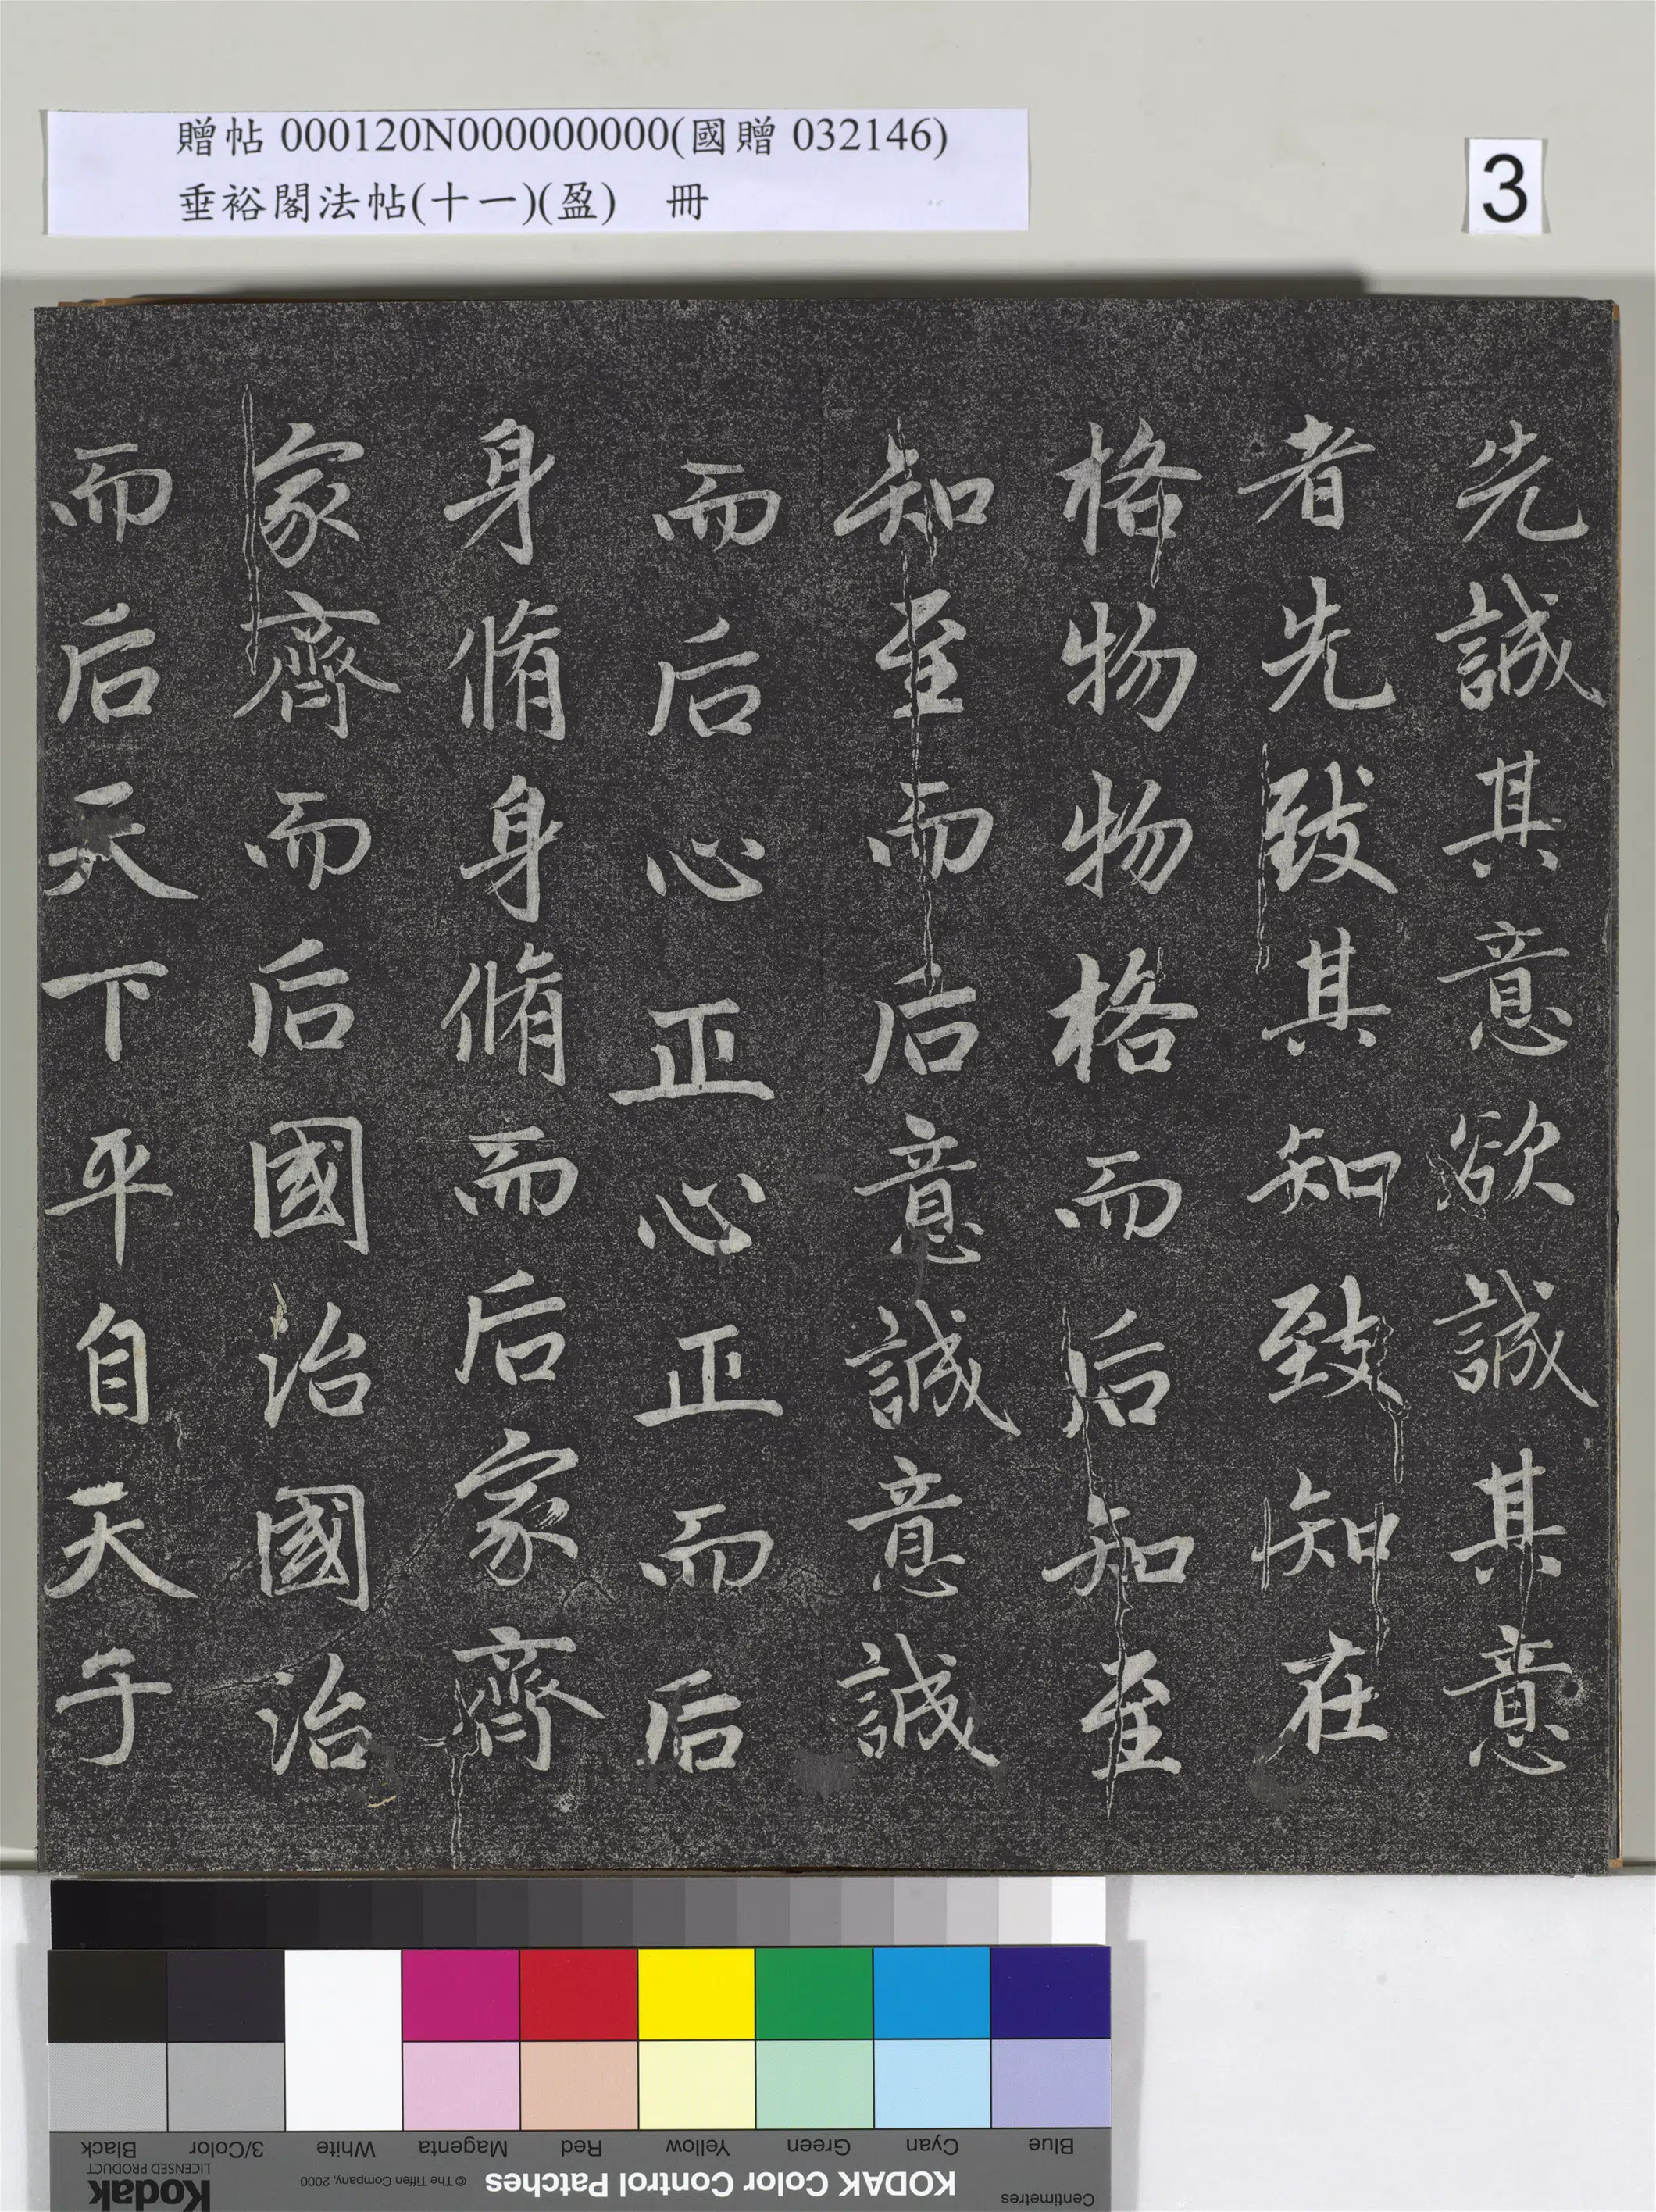 贈帖 000120N000000000(國贈 032146)
垂裕閣法帖(十一)(盈) 冊
3
先誠其意欲誠其意
者先致其知致知在
格物物格而后知至
知至而后意誠意誠
而后心正心正而后
身脩身脩而后家齊
家齊而后國治國治
而后天下平自天子
Black
3/Color
White
Magenta
Red
Yellow
Green
Cyan
Blue
Kodak
LICENSED PRODUCT
© The Tiffen Company, 2000
KODAK Color Control Patches
Centimetres